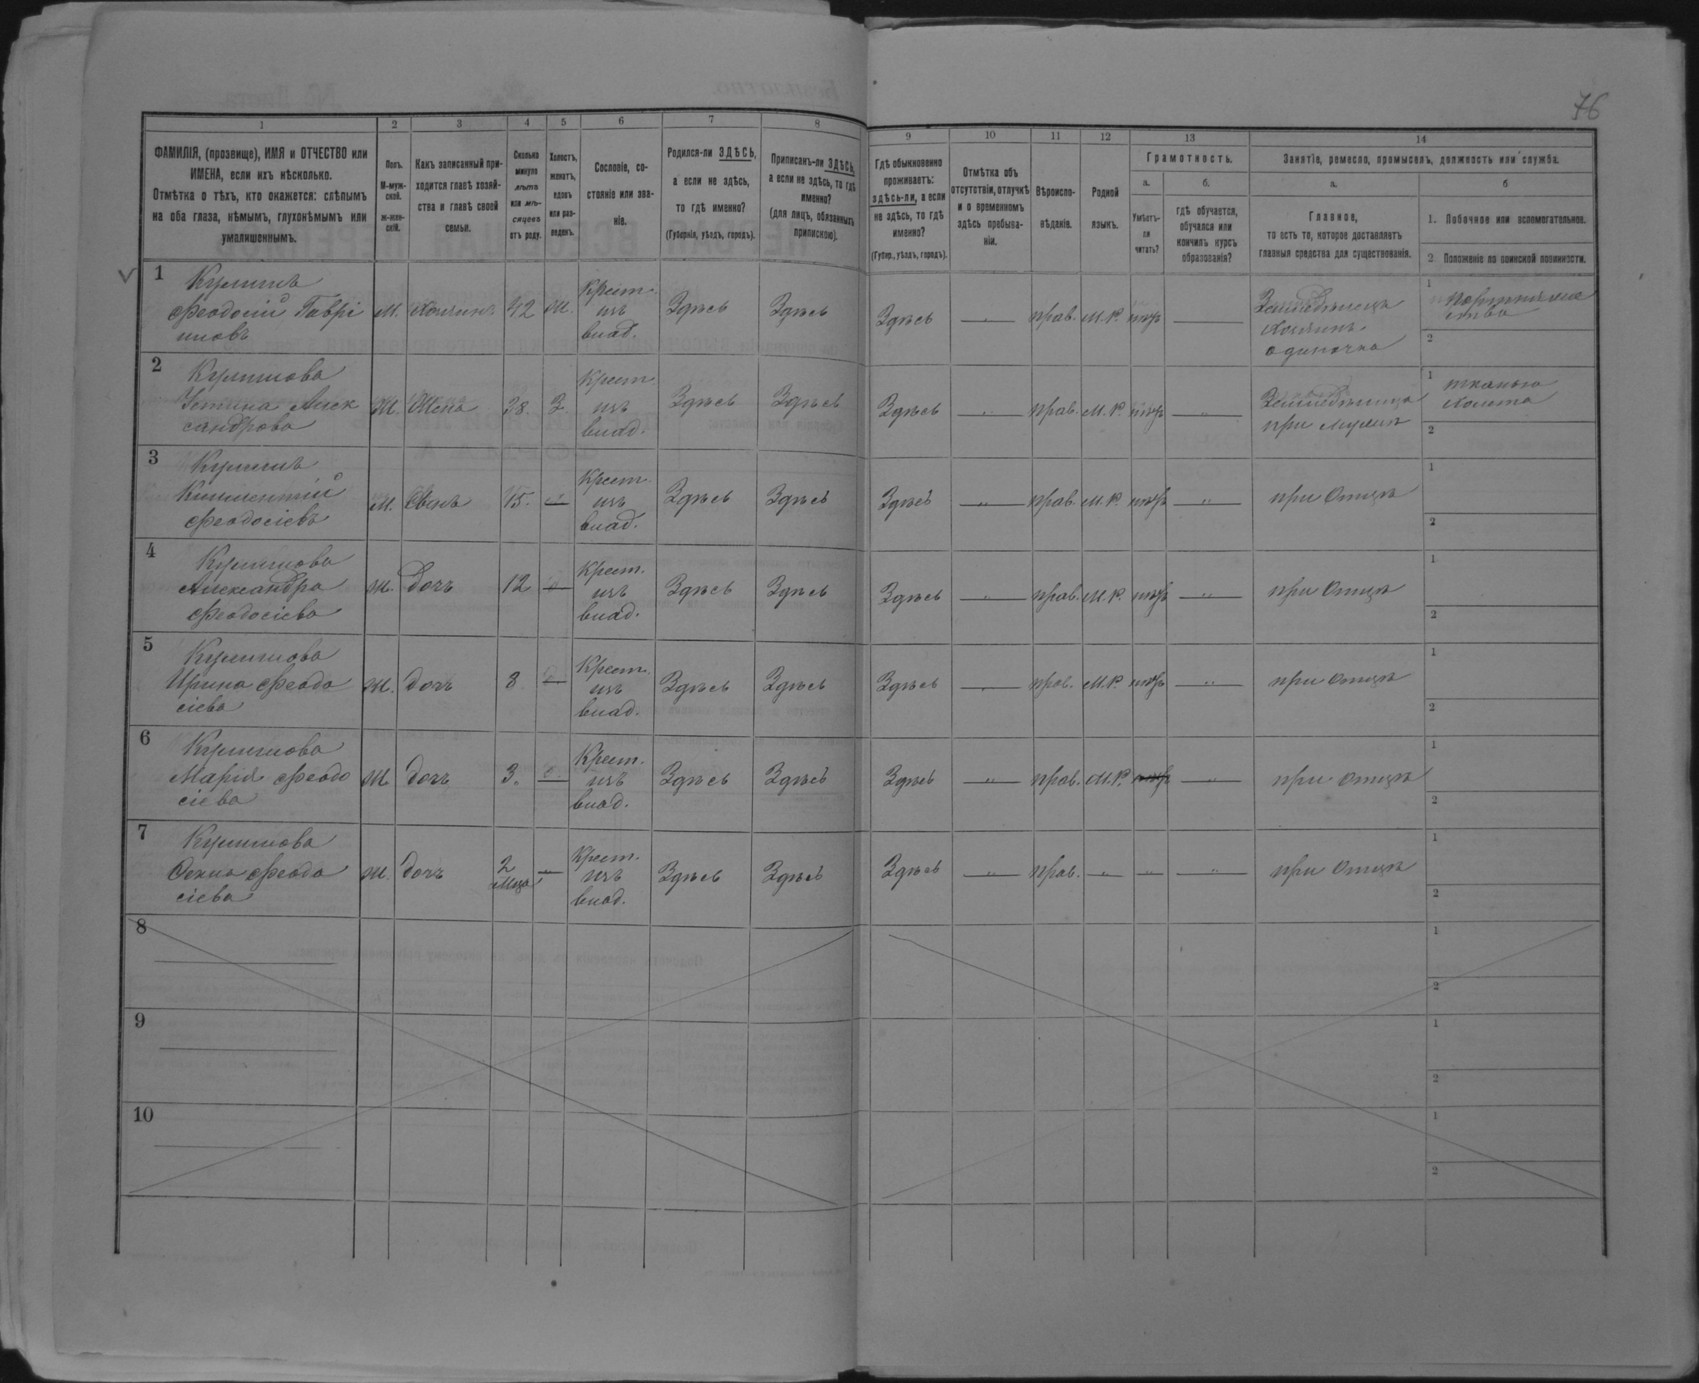 76
1 2 3 4 5 6 7 8
ФАМИЛІЯ, (прозвище), ИМЯ и ОТЧЕСТВО или
ИМЕНА, если ихъ нѣсколько.
Отмѣтка о тѣхъ, кто окажется: слѣпымъ
на оба глаза, нѣмымъ, глухонѣмымъ или
умалишеннымъ.
Полъ.
М-муж-
ской.
ж-жен-
скій.
Какъ записанный при-
ходится главѣ хозяй-
ства и главѣ своей
семьи.
Сколько
минуло
лѣтъ
или мѣ-
сяцевъ
отъ роду.
Холостъ,
женатъ,
вдовъ
или раз-
веденъ.
Сословіе, со-
стояніе или зва-
ніе.
Родился-ли ЗДѢСЬ,
а если не здѣсь,
то гдѣ именно?
(Губернія, уѣздъ, городъ).
Приписанъ-ли ЗДѢСЬ,
а если не здѣсь, то гдѣ
именно?
(для лицъ, обязанныхъ
припискою).
9 10 11 12 13 14
Гдѣ обыкновенно
проживаетъ:
здѣсь-ли, а если
не здѣсь, то гдѣ
именно?
(Губер., уѣздъ, городъ).
Отмѣтка объ
отсутствіи, отлучкѣ
и о временномъ
здѣсь пребыва-
ніи.
Вѣроиспо-
вѣданіе.
Родной
языкъ.
Грамотность.
а.
Умѣетъ-
ли
читать?
б.
гдѣ обучается,
обучался или
кончилъ курсъ
образованія?
Занятіе, ремесло, промыселъ, должность или служба.
а.
Главное,
то есть то, которое доставляетъ
главныя средства для существованія.
б
1. Побочное или вспомогательное.
2. Положеніе по воинской повинности.
1
Феодосій Гаврі
иловъ
М. Хозяинъ 42 Ж. Крест. изъ влад. Здѣсь Здѣсь Здѣсь — прав. М.Р. нѣтъ —
Хозяинъ
одиночка
1
2
2
Устина Алек
сандрова
Ж. Жена 38. З. Крест. изъ влад. Здѣсь Здѣсь Здѣсь — прав. М.Р. нѣтъ —
при мужѣ
1 тканьемъ
холста
2
3
Феодосіевъ
М. Сынъ 15. — Крест. изъ влад. Здѣсь Здѣсь Здѣсь — прав. М.Р. нѣтъ — при Отцѣ
1
2
4
Александра
Феодосіева
Ж. дочь 12 — Крест. изъ влад. Здѣсь Здѣсь Здѣсь — прав. М.Р. нѣтъ — при Отцѣ
1
2
5
Ирина Феодо
сіева
Ж. дочь 8 — Крест. изъ влад. Здѣсь Здѣсь Здѣсь — прав. М.Р. нѣтъ — при Отцѣ
1
2
6
Марія Феодо
сіева
Ж. дочь 3. — Крест. изъ влад. Здѣсь Здѣсь Здѣсь — прав. М.Р. — при Отцѣ
1
2
7
Феодо
сіева
Ж. дочь 2 — Крест. изъ влад. Здѣсь Здѣсь Здѣсь — прав. — — — при Отцѣ
1
2
8
1
2
9
1
2
10
1
2